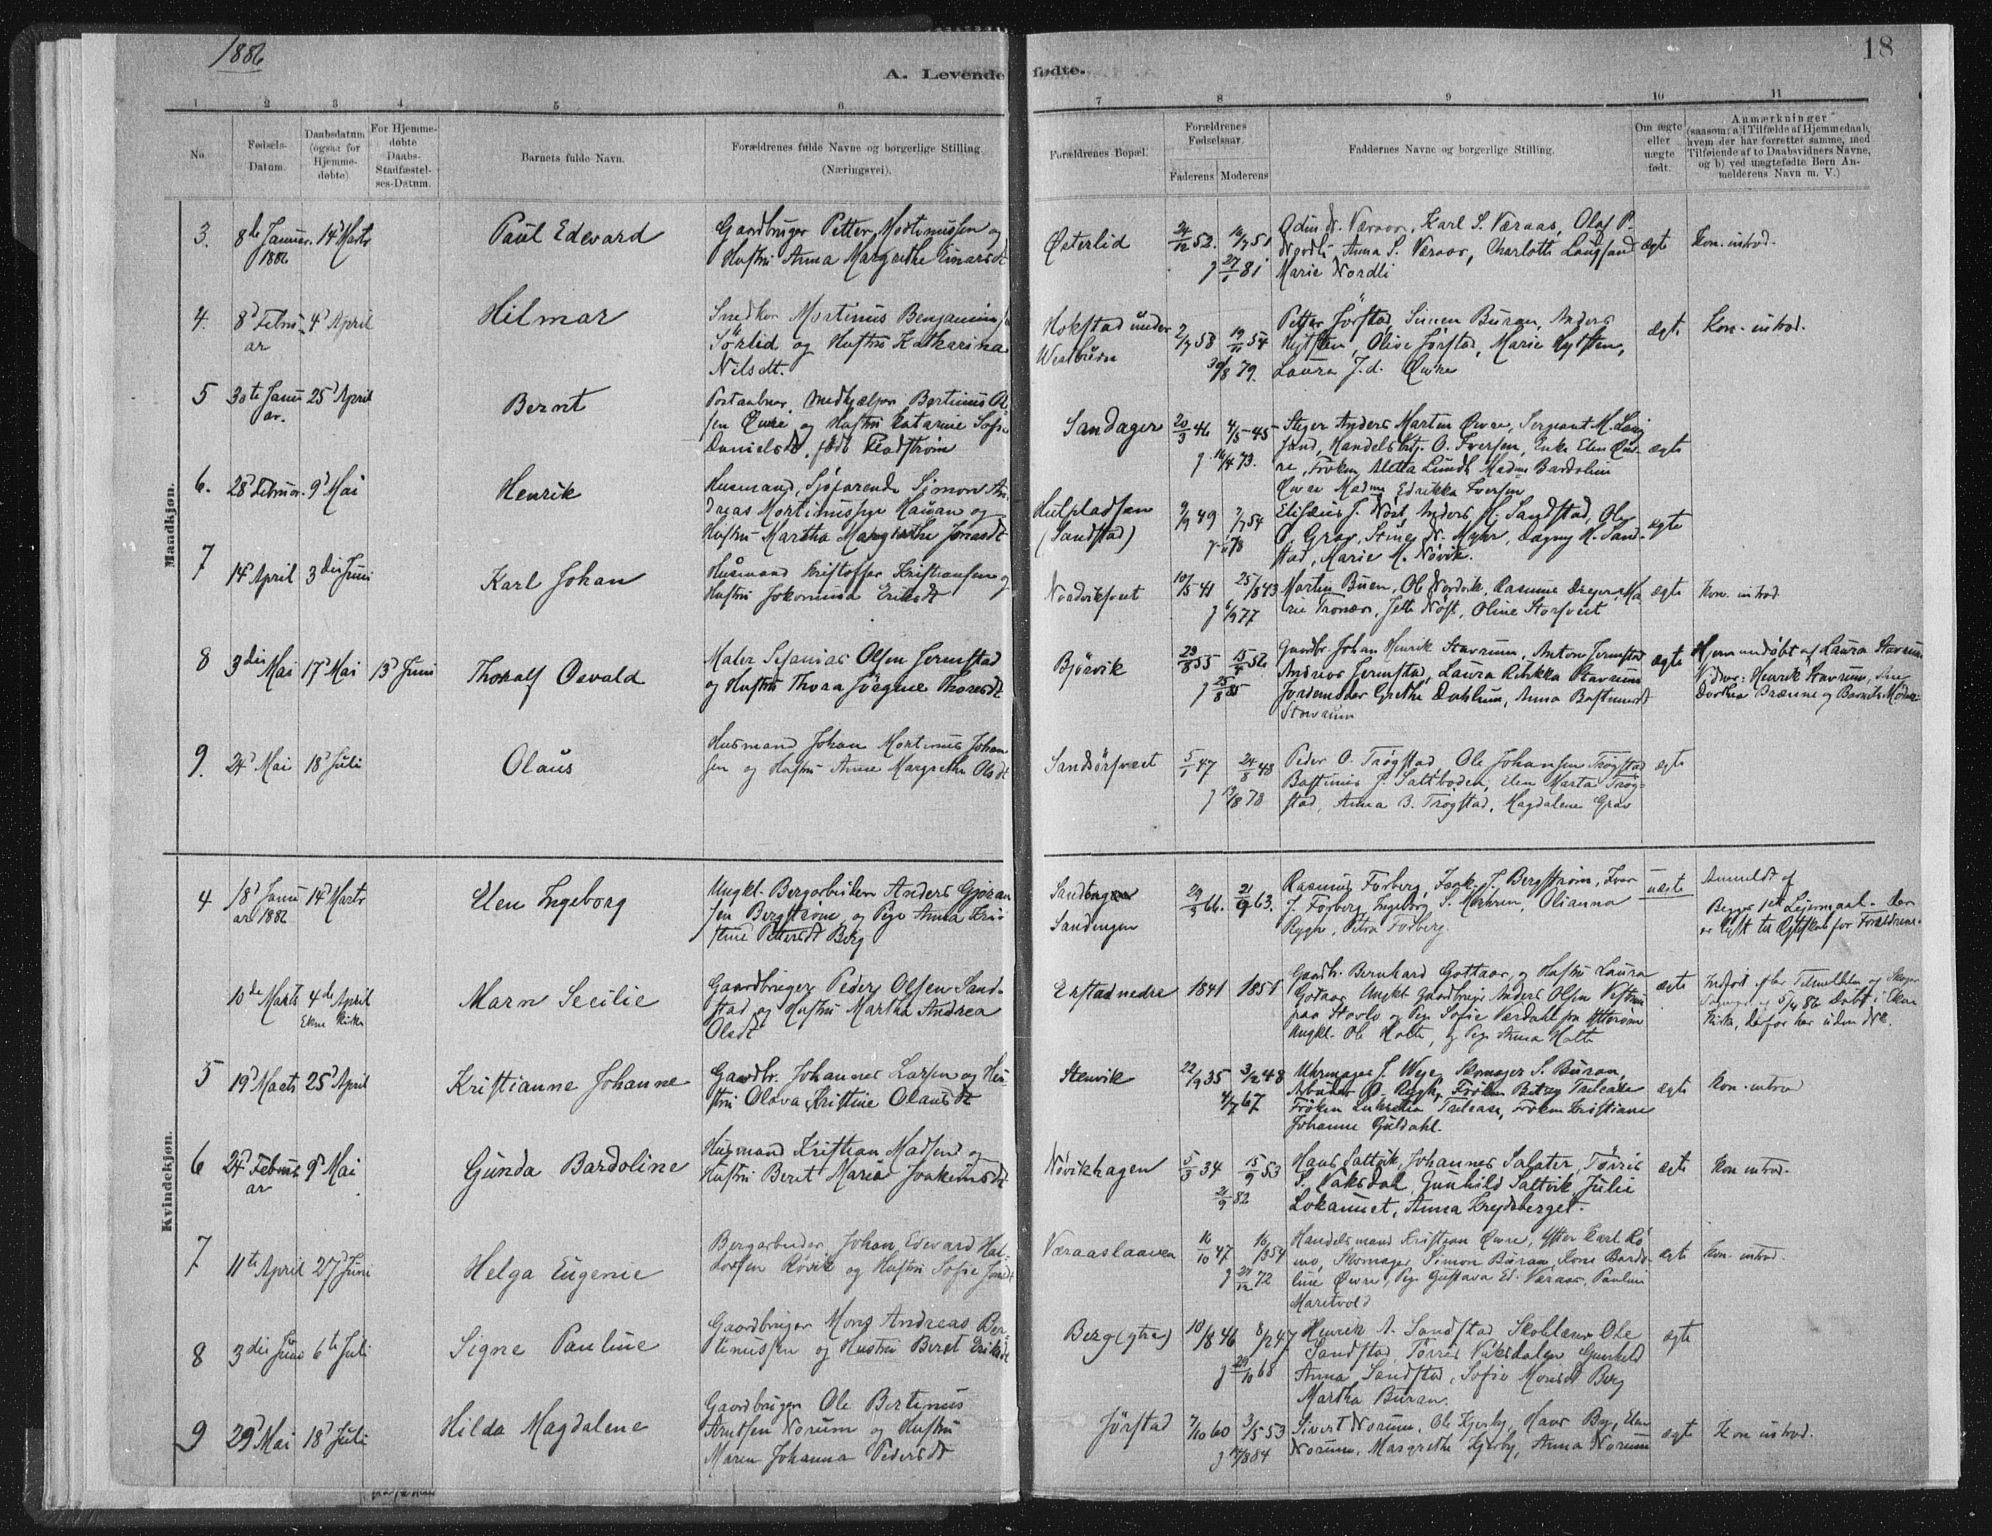 1886
18
A. Levende fødte.
1 2 3 4 5 6 7 8 9 10 11
No.
Fødsels-Datum.
Daabsdatum (ogsaa for Hjemme-døbte)
For Hjemme-døbte Daabs-Stadfæstel-ses-Datum.
Barnets fulde Navn.
Forældrenes fulde Navne og borgerlige Stilling. (Næringsvei).
Forældrenes Bopæl.
Forældrenes Fødselsaar.
Faderens Moderens
Faddernes Navne og borgerlige Stilling.
Om ægte eller uægte født.
Anmærkninger
(saasom: a) i Tilfælde af Hjemmedaab,
hvem der har forrettet samme, med
Tilføiende af to Daabsvidners Navne,
og b) ved uægtefødte Børn An-
melderens Navn m. V.)
Mandkjøn.
3. 8de Januar 1886 14d Marts
Paul Edevard
Gaardbruger Petter Mortinussen og
Hustru Anna Margrethe Einarsdt
Østerlid
Odin Væraas, Karl S. Væraas, Olaf P.
Nordli, Anna S. Væraas, Charlotte Langsand
Marie Nordli
ægte
Kon. introd.
4. 8d Febru ar 4d April
Hilmar
Smedkar Mortinus Benjamin
Sørlid og Hustru Katharina
Nilsdt.
Hokstad under
Petter Jørstad, Simen Buran, Anders
Olive Jørstad, Marie
Laura J.d. Øvre
ægte
Kon. introd.
5 30te Janu ar. 25d April
Bernt
Postaabner, Medhjælper Bertinus Ol
sen Øvre og Hustru Katarine Sofie
Danielsdt, født Fladstrøm
Sandager
20/3 46 4/5 45
Stiger Anders Marten Øvre, Sergeant M. Lang
sand, Handelsbtj. O. Iversen, Enke Elen Øv-
re, Frøken Aletta Lund, Madme Bardolin
Øvre Madme Edrikka Iversen
ægte
6. 28d Februar 9d Mai
Henrik
Husmand, Sjøfarende Simon An
dreas Mortinussen og
Hustru Martha Margrethe Jonasdt
(Sandstad)
9/9 49 7/7 54
Anders H. Sandstad, Ole
O. Grav, Stine N. Myhr, Dagny H. Sand-
stad, Marie M. Nøvik.
ægte
7 14d April 3die Juni
Karl Johan
Husmand Kristoffer Kristiansen og
Hustru Jokomina Eriksdt
Nordvikfvet
Marten Buen, Ole Nordvik, Rasmus Dreyer, Ma
rie Tronæs, Jette Nøst, Oline Storsvet
ægte
Kon. introd
8 3die Mai 17d Mai 13d Juni
Thoralf Osvald
Maler Sefanias Olsen Jermstad
og Hustru Thora Jørgine Thoresdt
Bjørvik
Gaardbr. Johan Henrik Stavrum, Anton Jermstad
Andreas Jermstad, Laura Rebekka Stavrum
Jordemoder Grethe Dahlum, Anna Bastiansdt
Stavrum
ægte
Hjemmedøbt af Laura Stavrum
Vidner: Henrik Stavrum,
Dorthea Brænne og Barnets Moder
9. 24d Mai 18d Juli
Olaus
Husmand Johan Mortinus Johan
sen og Hustru Anne Margrethe Olsdt
Sandsørfvet
5/1 47 24/8 48
Peder O. Trøgstad, Ole Johansen Trøgstad
Bastinus J. Saltboden, Elen Marta Trøg-
stad, Anna B. Trøgstad, Magdalene Grav
ægte
Kvindekjøn.
4 18d Janu ar 1886 14d Marts
Elen Ingeborg
Ungkl. Bergarbeider Anders Gjøran
sen Bergstrøm, og Pige Anna Kris
tine Pettersdt Berg
Sandengen
Rasmus Forberg, Jonk. J. Bergstrøm, Ivar
J. Forberg, Ingeborg S. Olianna
Rygh, Petra Forberg
uægte
Anmeldt af
Begges 1st Leiermaal. Der
er lyst til Ægteskab for Forældrene.
10de Marts 4de April
Ekne Kirke
Marn Secilie
Gaardbruger Peder Olsen Sand-
stad og Hustru Martha Andrea
Olsdt
Erstadnedre
1841 1851
Gaardbr. Bernhard Gottaas, og Hustru Laura
Gotaas Ungkt Gaardbruger Anders Olsen
paa Stavlo og Pige Sofie Værdahl fra Ytterøen
Ungkt. Ole Holte, og Pige Anna Holte
ægte
Indført efter
5/4 86. Døbt i Ekne
Kirke, derfor her uden No.
5 19d Marts 25d April
Kristianne Johanne
Gaardbr. Johannes Larsen og Hu
stru Olava Kristine Olausdt
Stenvik
22/9 35 3/12 48
Uhrmager J. Weje, Skomager S. Buran,
Arbeider O. Rygh, Frøken Betzy Trelease
Frøken Lukretia Trelease, Frøken Kristiane
Johanne Guldahl.
ægte
Kon. introd
6 24d Febru ar 9d Mai
Gunda Bardoline
Husmand Kristian Madsen og
Hustru Beret Maria Joakimsdt
Nøvikhagen
5/3 34 15/9 53
21/9 82
Hans Saltvik, Johannes Salater, Torris
S. Vaksdal, Gunhild Saltvik Julie
Lokaunet, Anna Krydsberget.
ægte
Kon introd.
7 11te April 27d Juni
Helga Eugenie
Bergarbeider Johan Edevard Hal-
vorsen Røvik og Hustru Sofie
Væraaslaaven
16/10 47 16/3 54
Handelsmand Kristian Øvre, Efter Karl Ro
mo, Skomager Simon Buran, Kone Bardo-
line Øvre, Pige Gustava Ed. Væraas, Pauline
Maritvold
ægte
Kon. introd.
8 3die Juni 6te Juli
Signe Pauline
Gaardbruger Mons Andreas Ber-
tinussen og Hustru Beret Eriksdt
Berg (ytre)
10/8 46 8/2 47
Henrik A. Sandstad Skolelærer Ole
Sandstad, Torris Vaksdalen Gunhild
Anna Sandstad, Sofie Monsdt Berg
Martha Buran.
ægte
9 29d Mai 18d Juli
Hilda Magdalene
Gaardbruger Ole Bertinus
Arntsen Norum og Hustru
Maren Johanna Pedersdt
Jørstad
7/10 60 3/5 53
Sivert Norum, Ole Kjerby, Hans By, Elen
Norum, Margrethe Kjerby, Anna Norum
ægte
Kon introd.